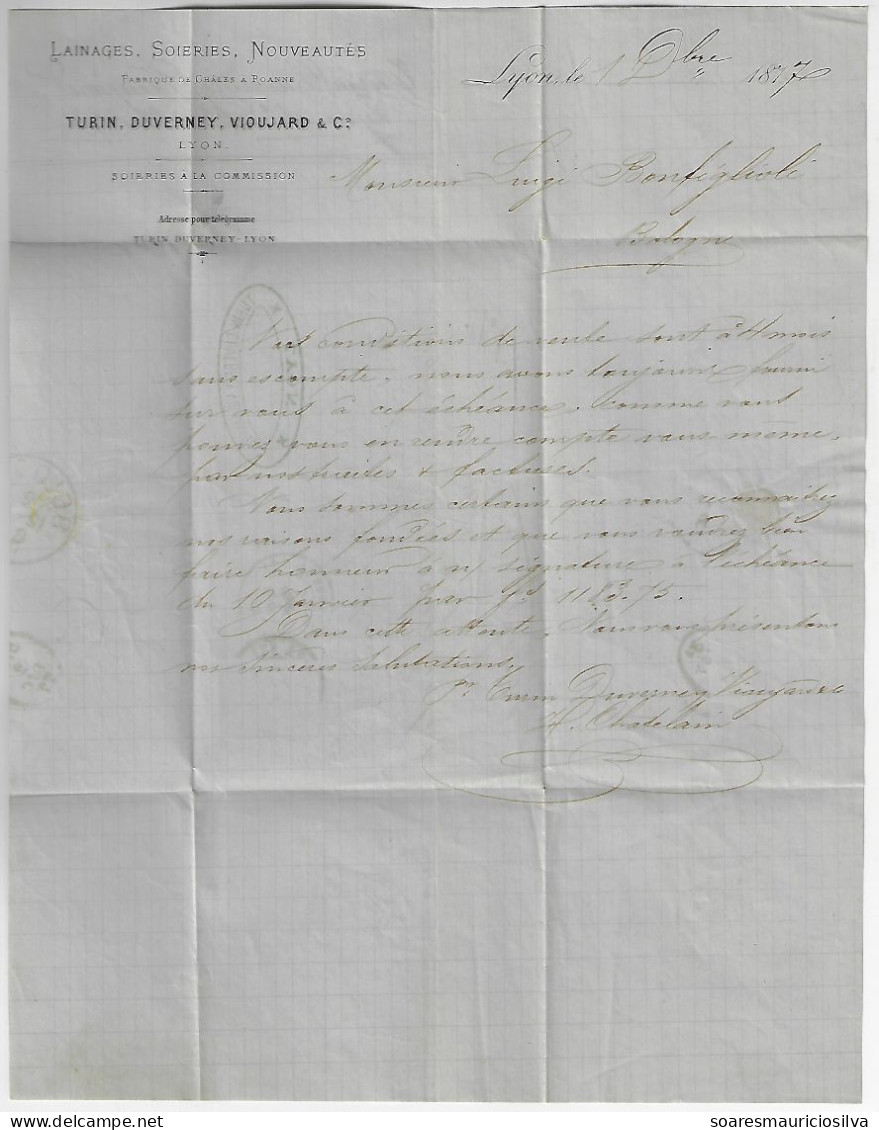 LAINAGES, SOIERIES, NOUVEAUTÉS
FABRIQUE DE CHÂLES A ROANNE
TURIN, DUVERNEY, VIOUJARD & Cº
LYON.
SOIERIES A LA COMMISSION
Adresse pour télégramme
TURIN DUVERNEY-LYON
Lyon, le 1 Dbre 1877
Monsieur Luigi Bonfiglioli
Bologne
conditions de vente sont à 4 mois
sans escompte, nous avons toujours fourni
sur vous à cet échéance, comme vous
pouvez vous en rendre compte vous même,
par nos traites & factures.
Nous sommes certains que vous reconnaitrez
nos raisons fondées et que vous voudrez bien
faire honneur à n/ signature à l'échéance
du 10 Janvier par fs 1183.75.
Dans cette attente, Nous vous présentons
nos sincères salutations.
pr Turin Duverney Vioujard & Co
A. Chatelain
soaresmauriciosilva